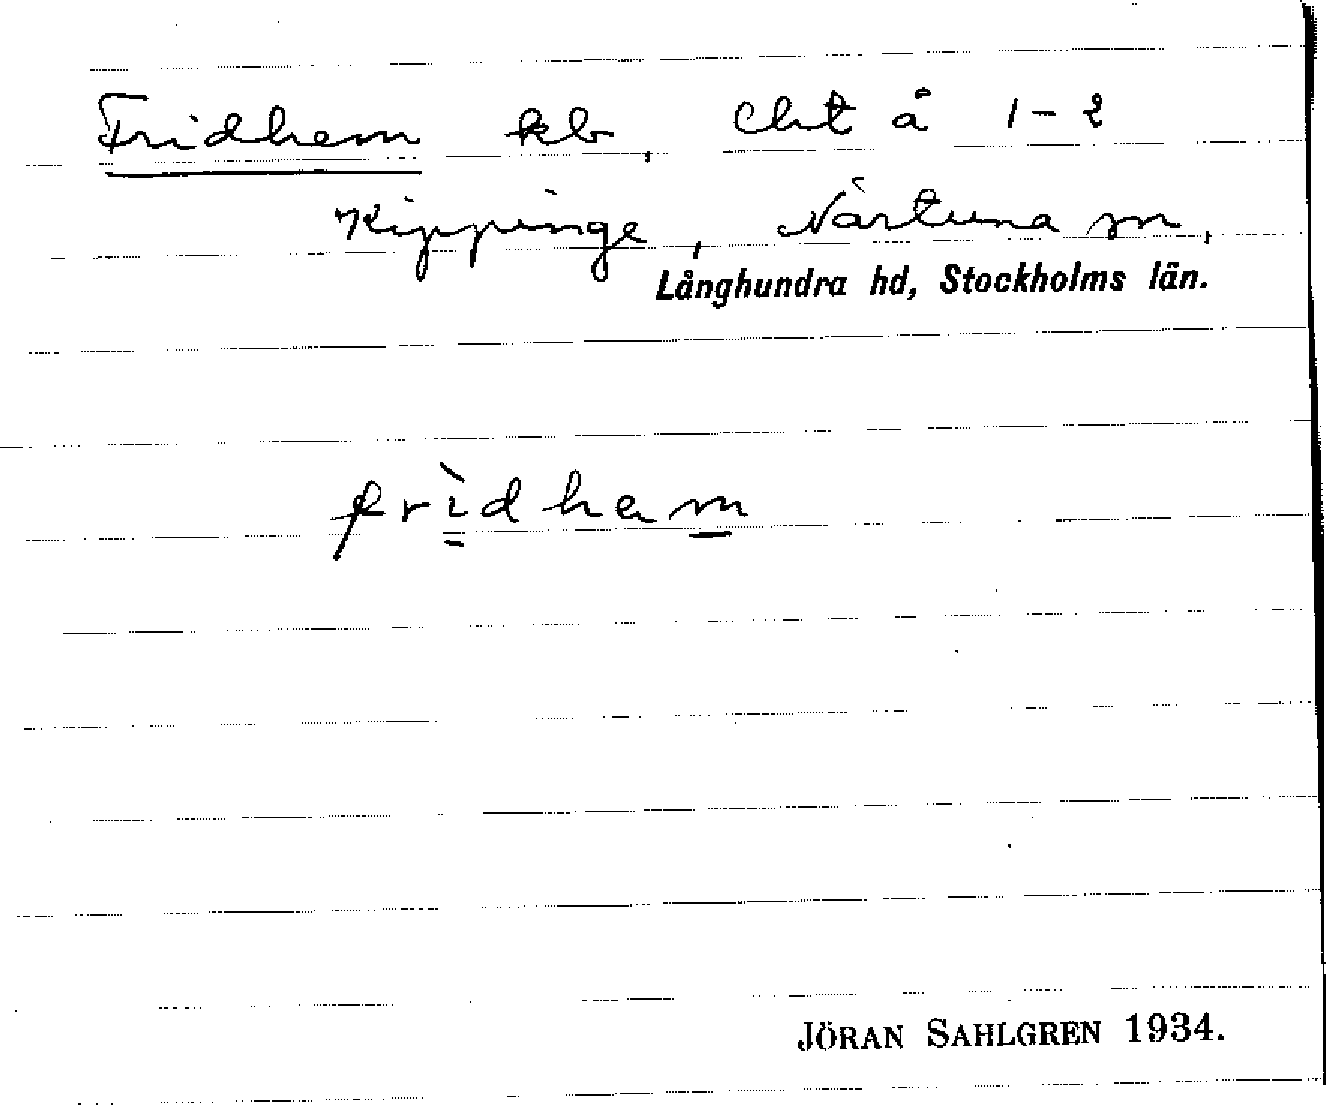 Fridhem kb, Cht å 1-2
Kippinge, Närtuna sn,
Långhundra hd, Stockholms län.
frìdhem
JÖRAN SAHLGREN 1934.